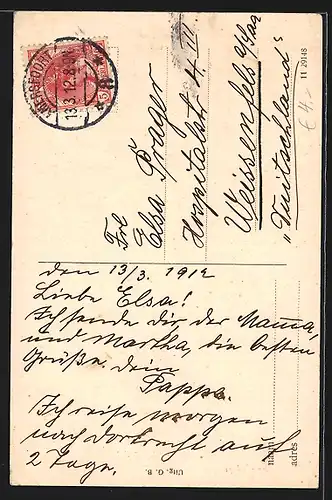 13.3.12.8
Frl
Elsa Prager
Hospitalstr 4 III
Weissenfels a/Saa
„Duitschland"
11 29148
€ 4,-
den 13/3. 1912
Liebe Elsa!
Ich sende dir, der Mama,
und Martha, die besten
Grüße. dein
Pappa.
Ich reise morgen
nach dortrecht auf
2 Tage.
naam
adres
Uitg. G. B.